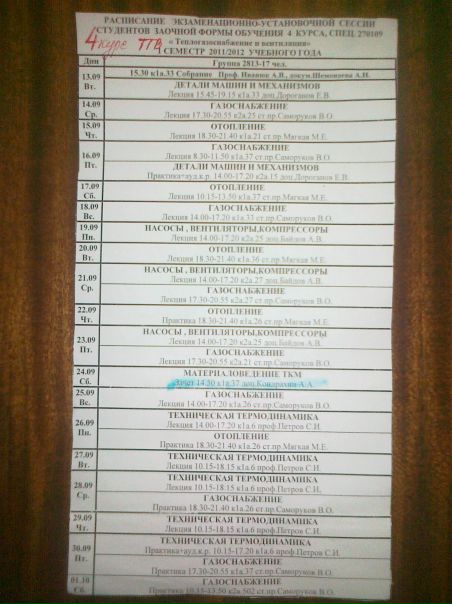 РАСПИСАНИЕ ЭКЗАМЕНАЦИОННО-УСТАНОВОЧНОЙ СЕССИИ
СТУДЕНТОВ ЗАОЧНОЙ ФОРМЫ ОБУЧЕНИЯ 4 КУРСА, СПЕЦ. 270109
4 курс ТГВ
« Теплогазоснабжение и вентиляция»
1 СЕМЕСТР 2011/2012 УЧЕБНОГО ГОДА
Дни Группа 2813-17 чел.
13.09 Вт. 15.30 к1а.33 Собрание Проф. Иванов А.В., докум.
ДЕТАЛИ МАШИН И МЕХАНИЗМОВ
Лекция 15.45-19.15 к1а.33 доц.Дороганов Е.В.
14.09 Ср. ГАЗОСНАБЖЕНИЕ
Лекция 17.30-20.55 к2а.25 ст.пр.Саморуков В.О.
15.09 Чт. ОТОПЛЕНИЕ
Лекция 18.30-21.40 к1а.21 ст.пр.Мягкая М.Е.
16.09 Пт. ГАЗОСНАБЖЕНИЕ
Лекция 8.30-11.50 к1а.37 ст.пр.Саморуков В.О.
ДЕТАЛИ МАШИН И МЕХАНИЗМОВ
Практика+ауд.к.р. 14.00-17.20 к2а.15 доц.Дороганов Е.В.
17.09 Сб. ОТОПЛЕНИЕ
Лекция 10.15-13.50 к1а.37 ст.пр.Мягкая М.Е.
18.09 Вс. ГАЗОСНАБЖЕНИЕ
Лекция 14.00-17.20 к1а.33 ст.пр.Саморуков В.О.
19.09 Пн. НАСОСЫ , ВЕНТИЛЯТОРЫ,КОМПРЕССОРЫ
Лекция 14.00-17.20 к2а.25 доц.Байдов А.В.
20.09 Вт. ОТОПЛЕНИЕ
Лекция 18.30-21.40 к1а.36 ст.пр.Мягкая М.Е.
21.09 Ср. НАСОСЫ , ВЕНТИЛЯТОРЫ,КОМПРЕССОРЫ
Лекция 14.00-17.20 к2а.27 доц.Байдов А.В.
ГАЗОСНАБЖЕНИЕ
Лекция 17.30-20.55 к2а.27 ст.пр.Саморуков В.О.
22.09 Чт. ОТОПЛЕНИЕ
Практика 18.30-21.40 к1а.26 ст.пр.Мягкая М.Е.
23.09 Пт. НАСОСЫ , ВЕНТИЛЯТОРЫ,КОМПРЕССОРЫ
Лекция 14.00-17.20 к2а.25 доц.Байдов А.В.
ГАЗОСНАБЖЕНИЕ
Лекция 17.30-20.55 к2а.21 ст.пр.Саморуков В.О.
24.09 Сб. МАТЕРИАЛОВЕДЕНИЕ ТКМ
Зачет 14.30 к1а.37 доц.Кондрахин А.А.
25.09 Вс. ГАЗОСНАБЖЕНИЕ
Лекция 14.00-17.20 к1а.26 ст.пр.Саморуков В.О.
26.09 Пн. ТЕХНИЧЕСКАЯ ТЕРМОДИНАМИКА
Лекция 14.00-17.20 к1а.6 проф.Петров С.И.
ОТОПЛЕНИЕ
Практика 18.30-21.40 к1а.26 ст.пр.Мягкая М.Е.
27.09 Вт. ТЕХНИЧЕСКАЯ ТЕРМОДИНАМИКА
Лекция 10.15-18.15 к1а.6 проф.Петров С.И.
28.09 Ср. ТЕХНИЧЕСКАЯ ТЕРМОДИНАМИКА
Лекция 10.15-18.15 к1а.6 проф.Петров С.И.
ГАЗОСНАБЖЕНИЕ
Практика 18.30-21.40 к1а.26 ст.пр.Саморуков В.О.
29.09 Чт. ТЕХНИЧЕСКАЯ ТЕРМОДИНАМИКА
Лекция 10.15-18.15 к1а.6 проф.Петров С.И.
30.09 Пт. ТЕХНИЧЕСКАЯ ТЕРМОДИНАМИКА
Практика+ауд.к.р. 10.15-17.20 к1а.6 проф.Петров С.И.
ГАЗОСНАБЖЕНИЕ
Практика 17.30-20.55 к1а.37 ст.пр.Саморуков В.О.
01.10 Сб. ГАЗОСНАБЖЕНИЕ
Практика 10.15-13.50 к2а.502 ст.пр.Саморуков В.О.